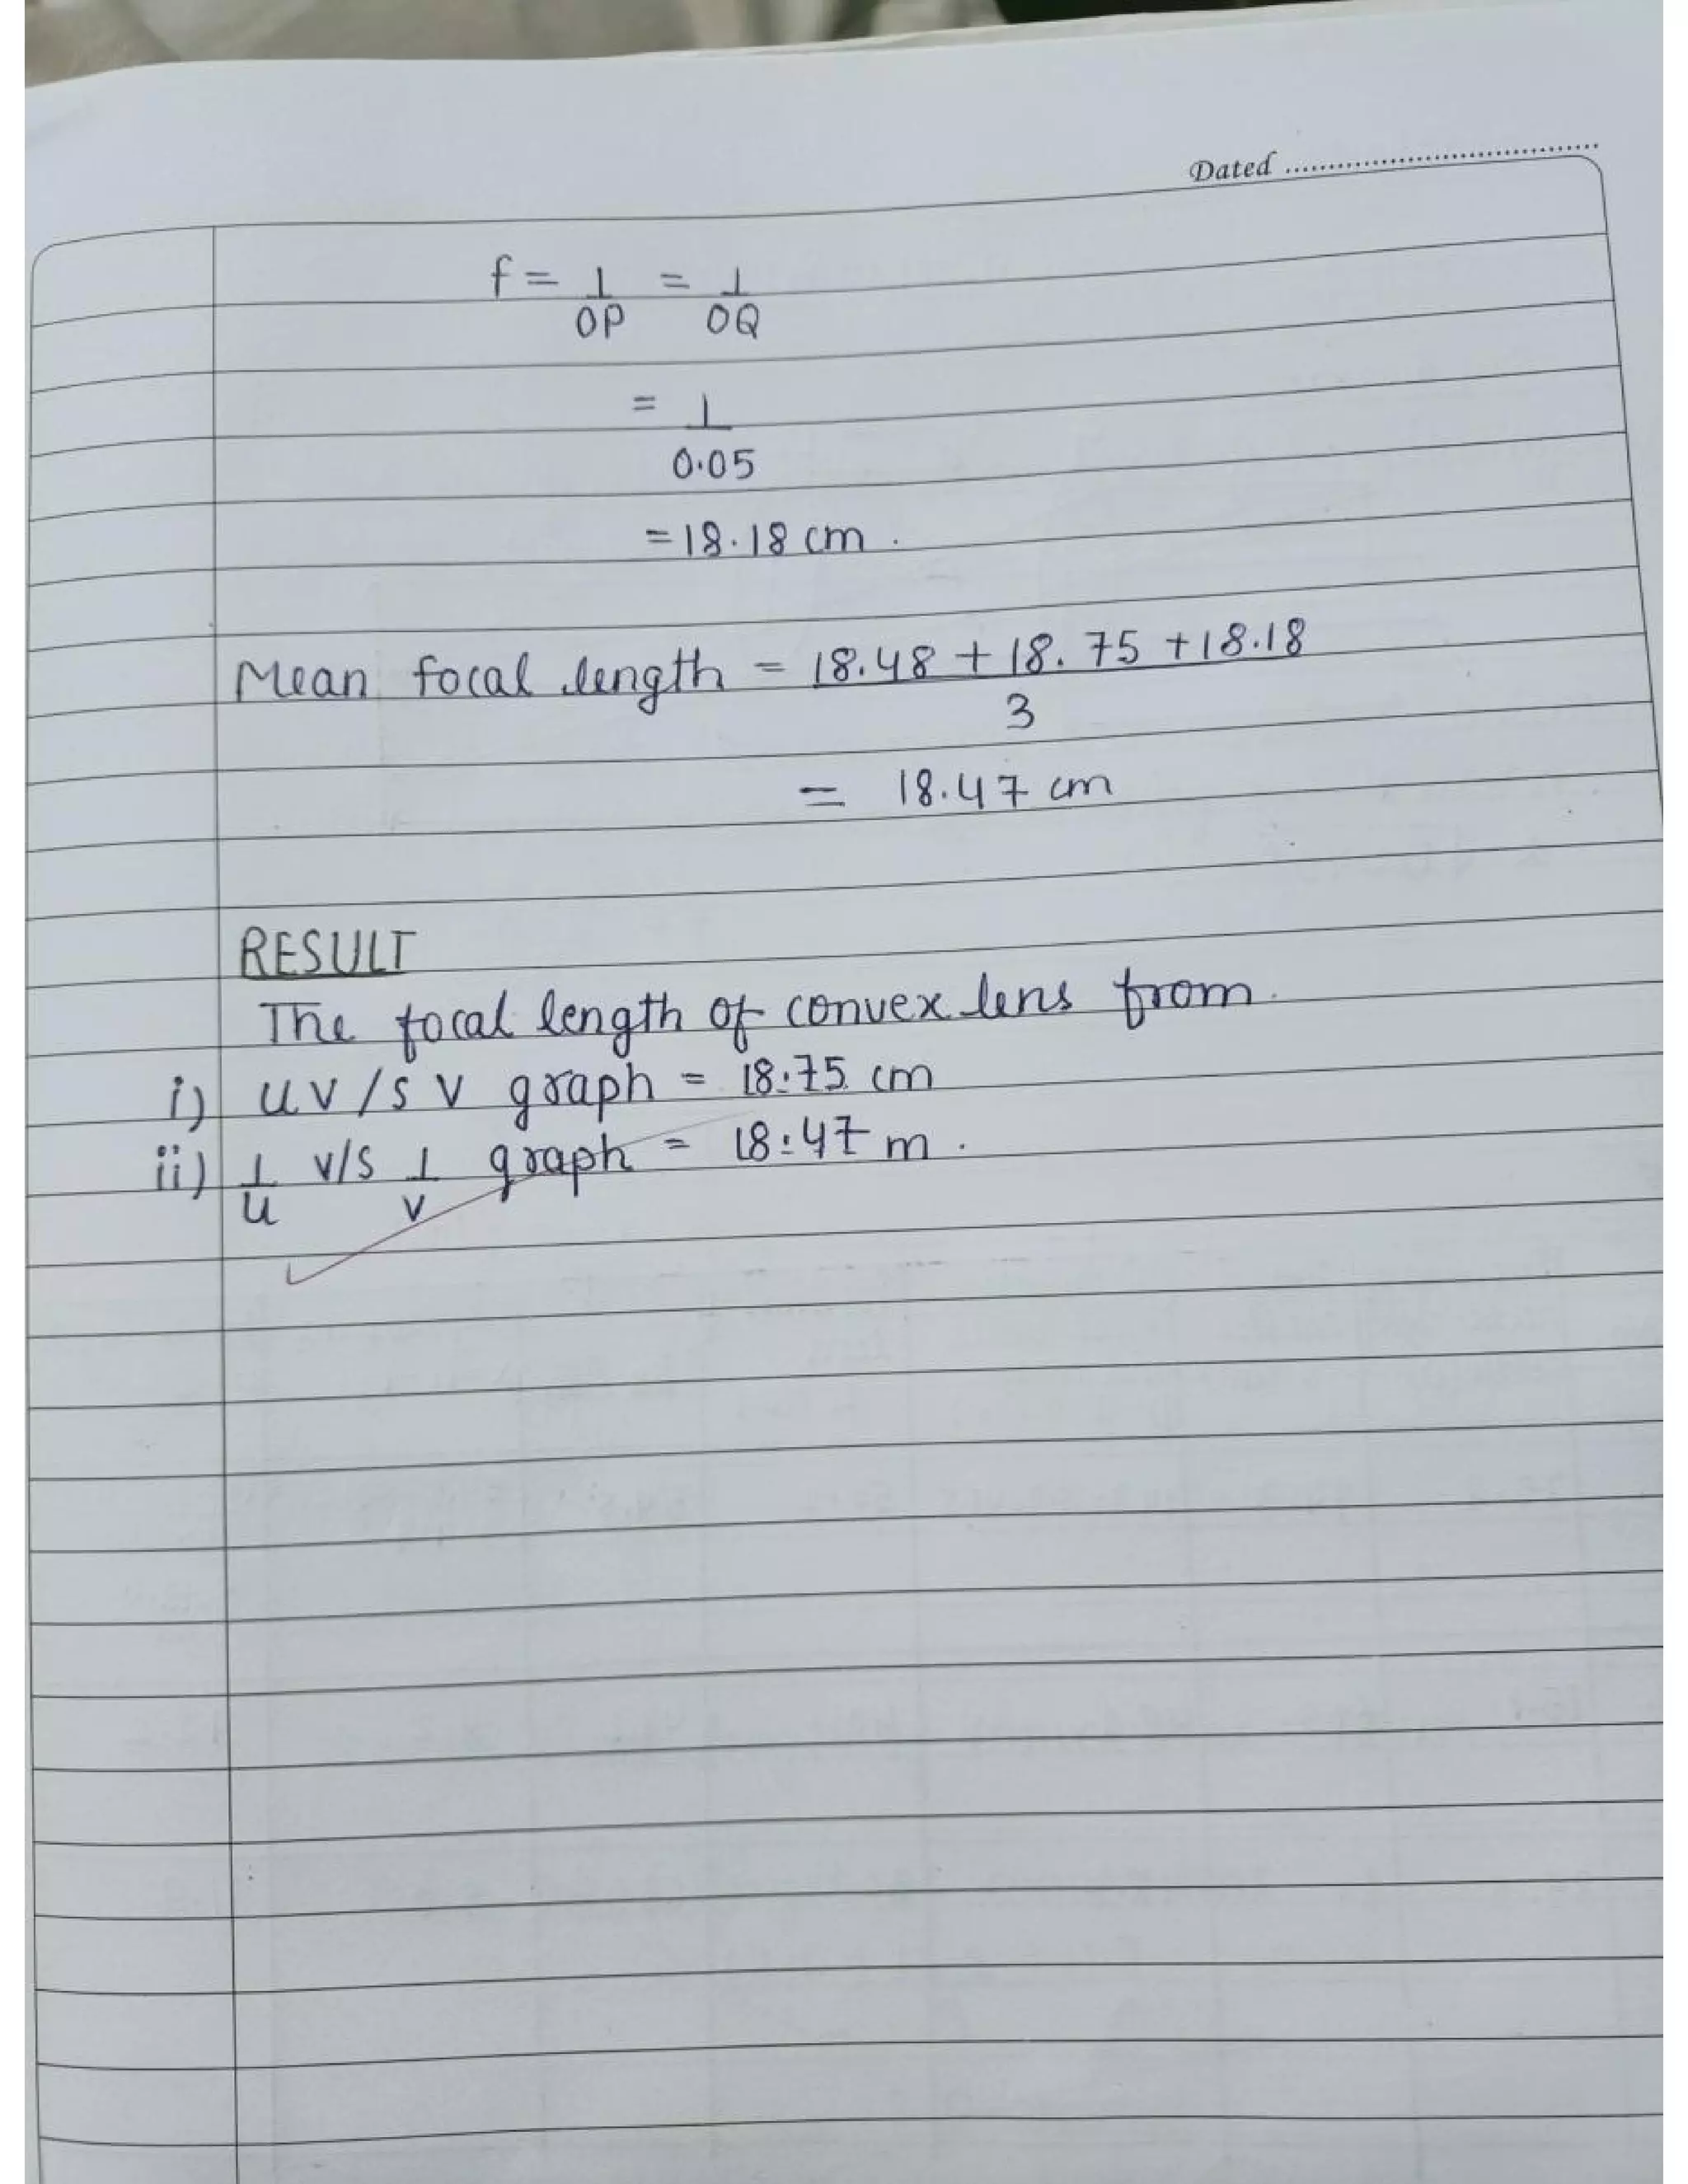 Dated
f = 1/OP = 1/OQ
= 1/0.05
= 18.18 cm.
Mean focal length = 18.48 + 18.75 + 18.18 / 3
= 18.47 cm
RESULT
The focal length of convex lens from
i) u v/s v graph = 18.75 cm
ii) 1/u v/s 1/v graph = 18.47 m.